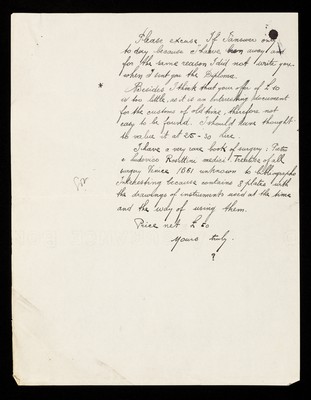 Please excuse If I answer only
to day because I have been away and
for the same reason I did not write you
when I sent you the Diploma.
Besides I think that your offer of L 10
is too little, as it is an Interesting document
for the customs of old time, therefore not
easy to be found. I should have thought
to value it at 25 - 30 lire
I have a very rare book of surgery:
a Ludovico medical Treatise of all
surgery Venice 1661 unknown to bibliographs
Interesting because contains 8 plates with
the drawings of instruments used at the time
and the way of using them.
Price net L
Yours truly.
?